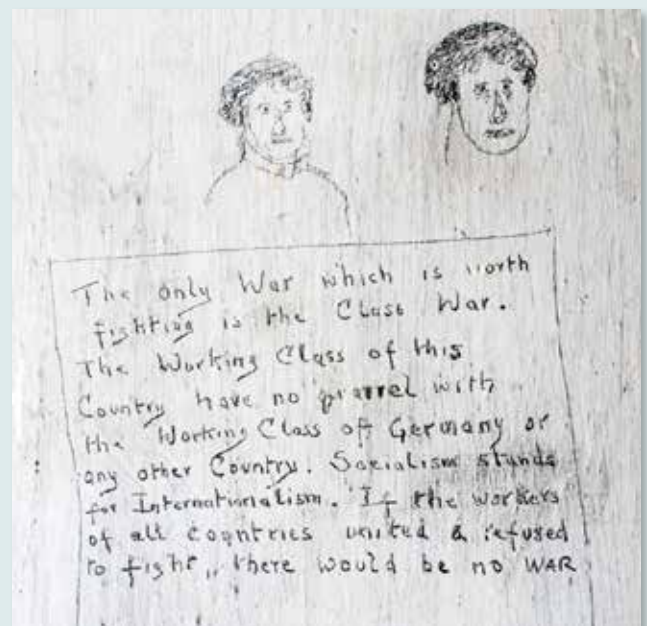 The only War which is worth
fighting is the Class War.
The Working Class of this
Country have no qrarrel with
the Working Class of Germany or
any other Country. Socialism stands
for Internationalism. If the workers
of all countries united & refused
to fight, there would be no WAR